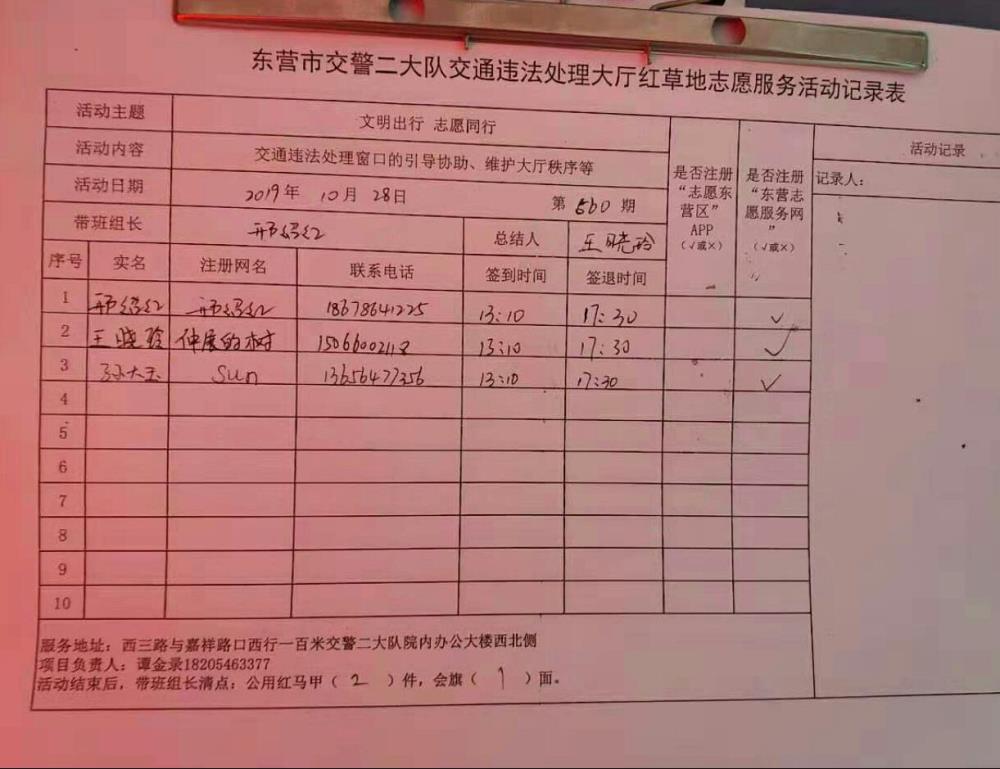 东营市交警二大队交通违法处理大厅红草地志愿服务活动记录表
活动主题 文明出行 志愿同行
活动内容 交通违法处理窗口的引导协助、维护大厅秩序等
活动日期 2019年 10月 28日 第 560 期
带班组长 邢绍红 总结人 王晓玲
是否注册“志愿东营区”APP（√或×）
是否注册“东营志愿服务网”（√或×）
活动记录
记录人：
序号 实名 注册网名 联系电话 签到时间 签退时间
1 邢绍红 邢绍红 18678641225 13:10 17:30 ✓
2 王晓玲 伸展的树 15066002118 13:10 17:30 ✓
3 孙大玉 Sun 13656477356 13:10 17:30 ✓
4
5
6
7
8
9
10
服务地址：西三路与嘉祥路口西行一百米交警二大队院内办公大楼西北侧
项目负责人：谭金录18205463377
活动结束后，带班组长清点：公用红马甲（ 2 ）件，会旗（ 1 ）面。